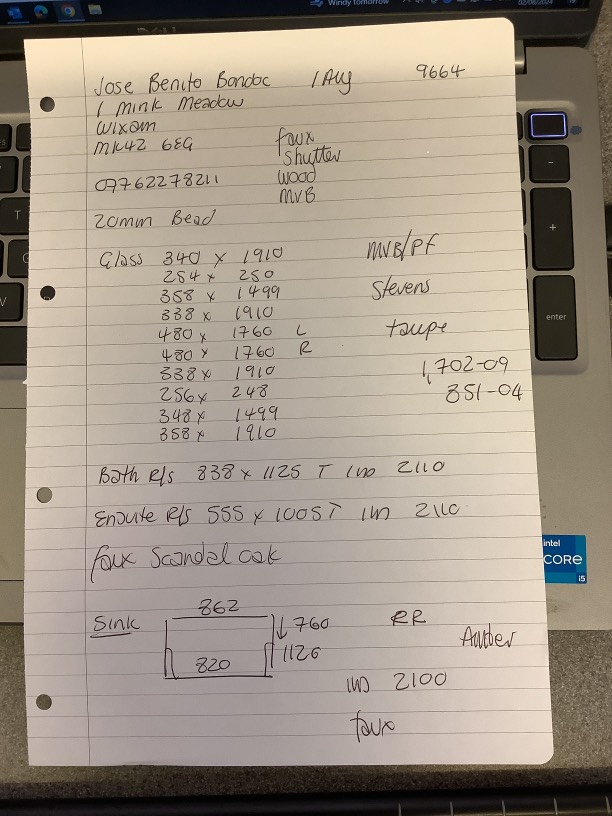 Windy tomorrow
02/08/2024
Jose Benito Bondoc 1 Aug 9664
1 Mink Meadow
Wixam
MK42 6EG
faux
shutter
07762278211 wood
MVB
20mm Bead
Glass 340 x 1910 MVB/Pf
254 x 250
358 x 1499 Stevens
338 x 1910
480 x 1760 L taupe
480 x 1760 R
338 x 1910 1,702-09
256 x 248 851-04
348 x 1499
358 x 1910
Bath R/S 838 x 1125 T 2110
Ensuite R/S 555 x 1005 T 2110
faux Scandal oak
Sink 862 ↓ 760 RR
820 1126
2100
faux
enter
intel
CORE
i5